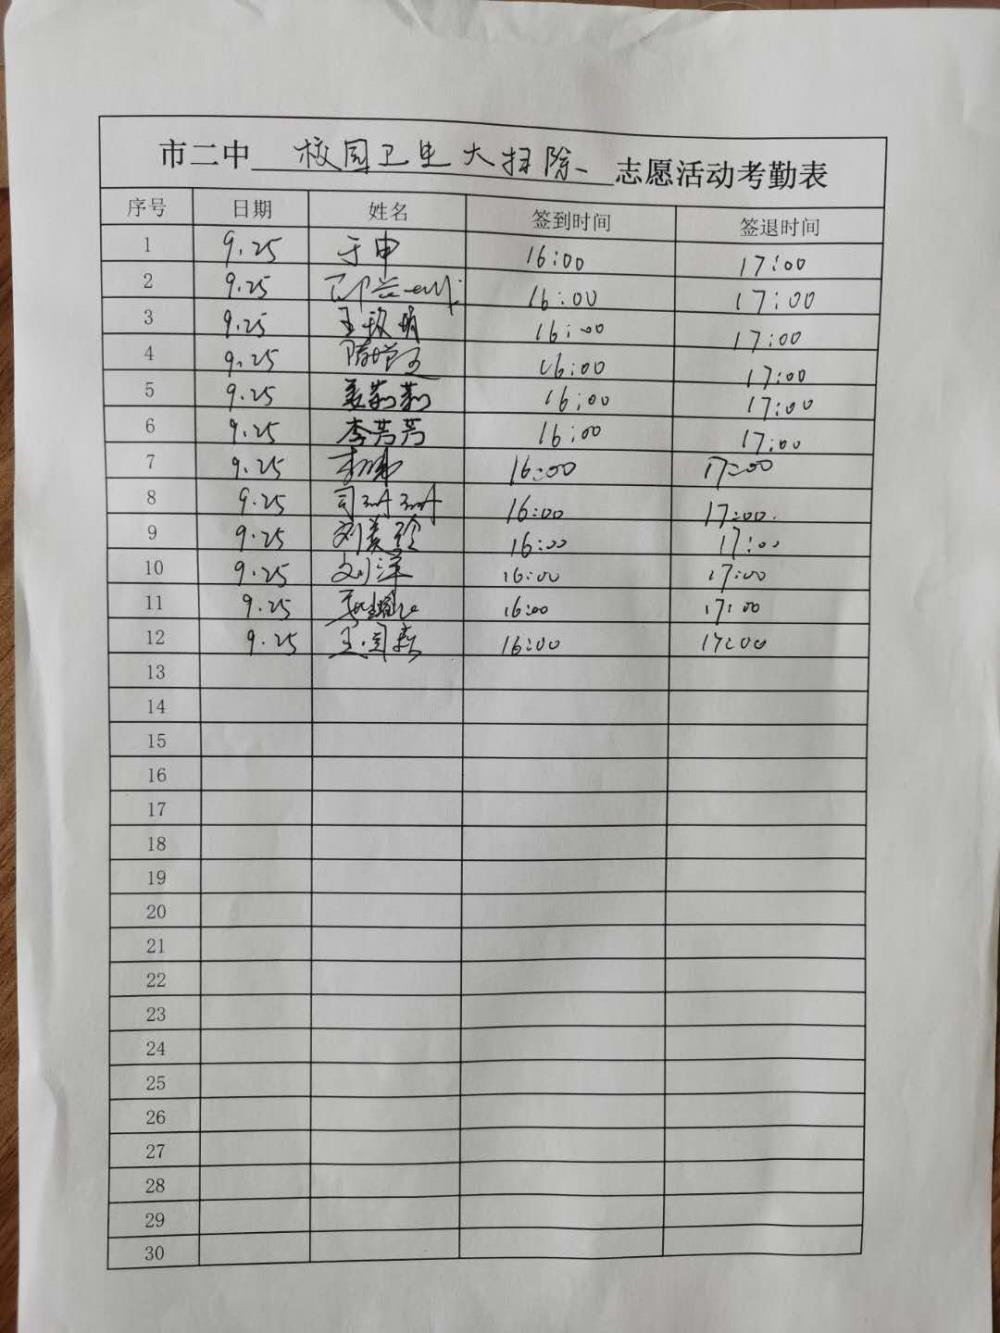 市二中 校园卫生大扫除 志愿活动考勤表
序号 日期 姓名 签到时间 签退时间
1 9.25 于申 16:00 17:00
2 9.25 16:00 17:00
3 9.25 王 16:00 17:00
4 9.25 16:00 17:00
5 9.25 姜莉莉 16:00 17:00
6 9.25 李芳芳 16:00 17:00
7 9.25 16:00 17:00
8 9.25 司 16:00 17:00
9 9.25 刘美玲 16:00 17:00
10 9.25 刘洋 16:00 17:00
11 9.25 16:00 17:00
12 9.25 王 16:00 17:00
13
14
15
16
17
18
19
20
21
22
23
24
25
26
27
28
29
30